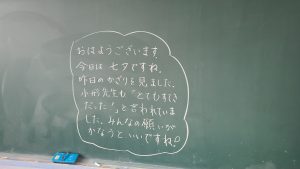 おはようございます。
今日は七夕ですね。
昨日のかざりを見ました。
小形先生も"とてもすてき
だった"と言われていま
した。みんなの願いが
かなうといいですね。